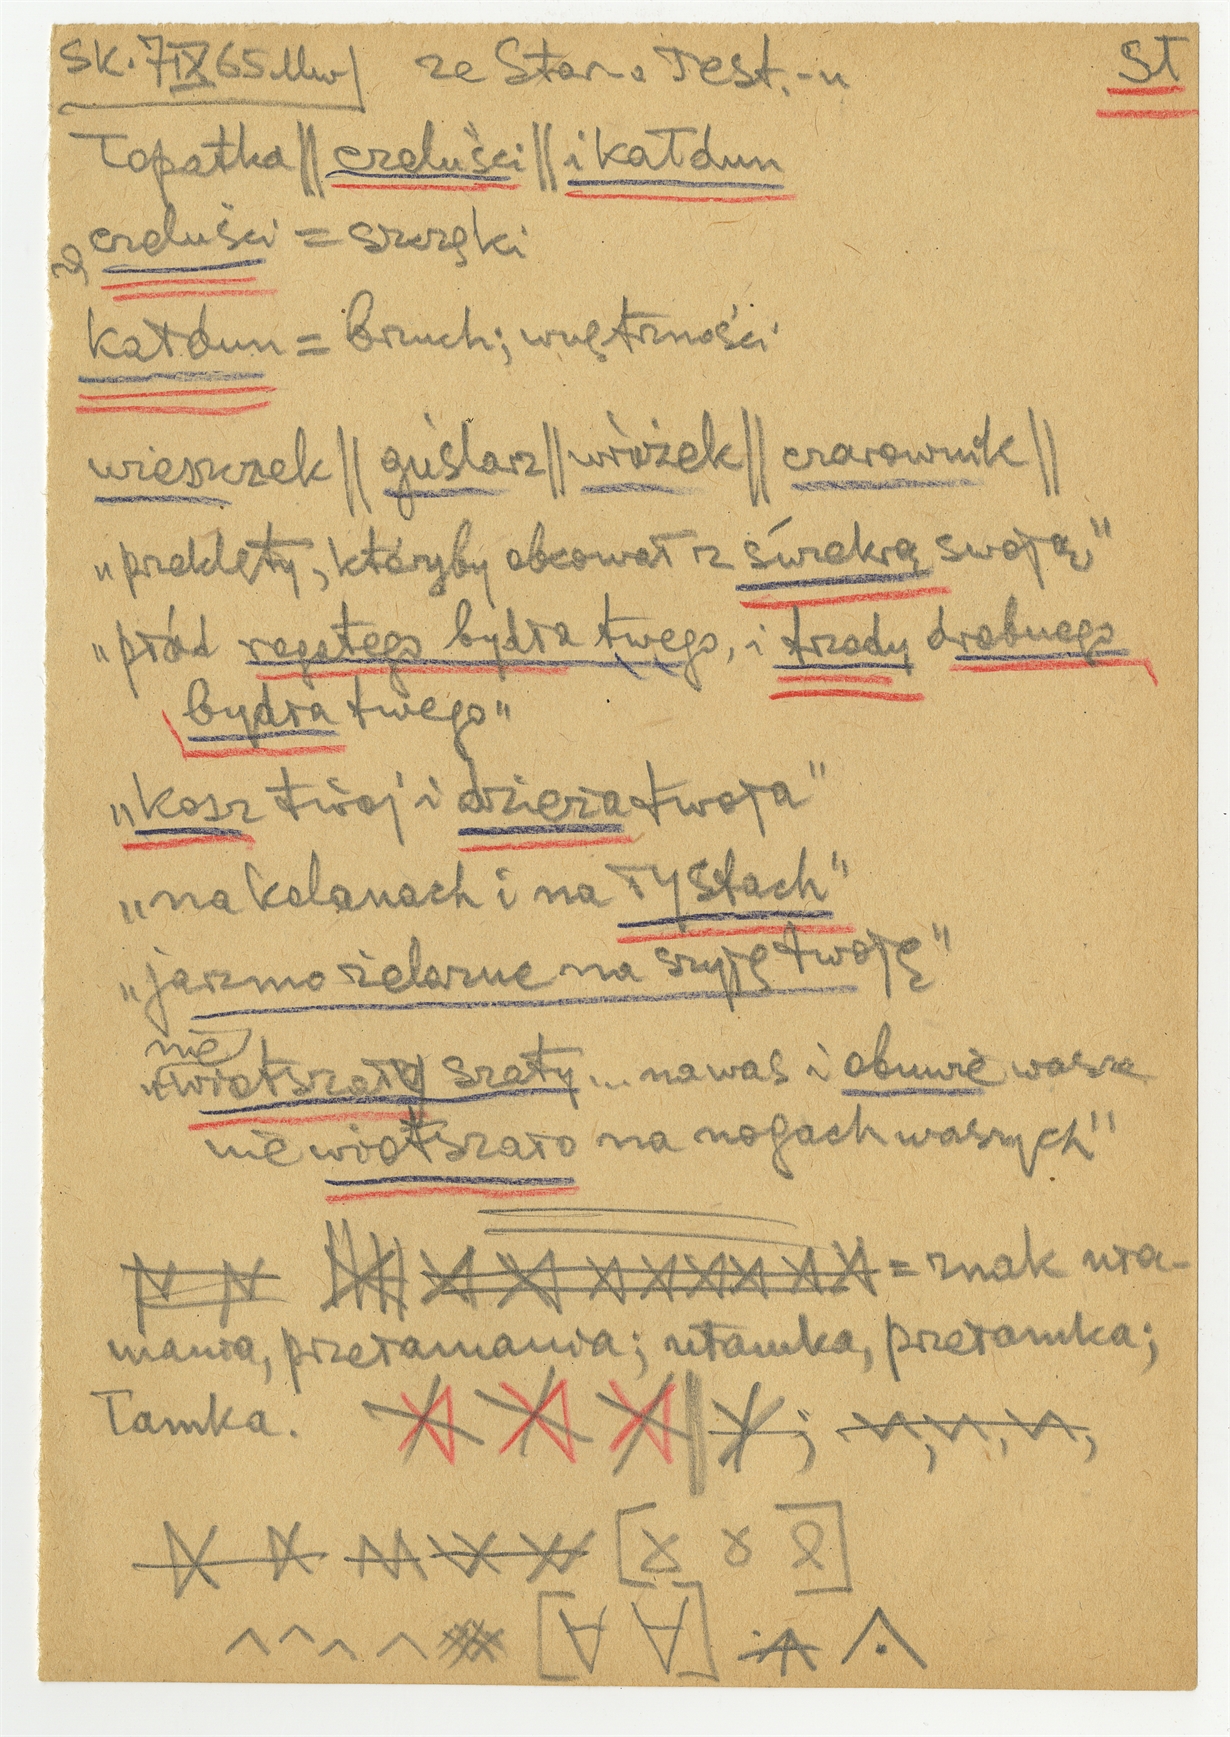 SK. 7 IX 65. Mw ze Star. Test.-u ST
Łopatka || czeluści || i kałdun
czeluści = szczęki
kałdun = brzuch; wnętrzności
wieszczek || guślarz || wróżek || czarownik ||
„przeklęty, któryby obcował z świekrą swoją"
„płód rogatego bydła twego, i trzody drobnego
bydła twego"
„kosz twój i dzieża twoja"
„na kolanach i na łystach"
„jarzmo żelazne na szyję twoję"
nie
zwiotszały szaty... na was i obuwie wasze
nie wiotszało na nogach waszych"
= znak uła-
mania, przełamania; ułamka, przełamka;
łamka.